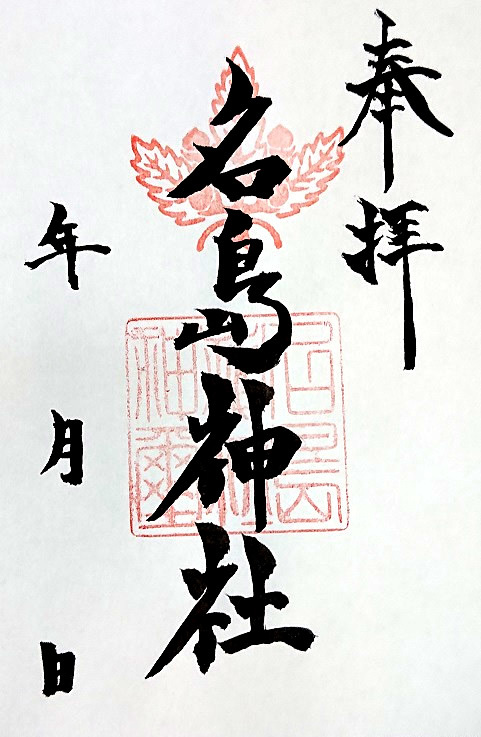 奉拝
名島神社
年月日